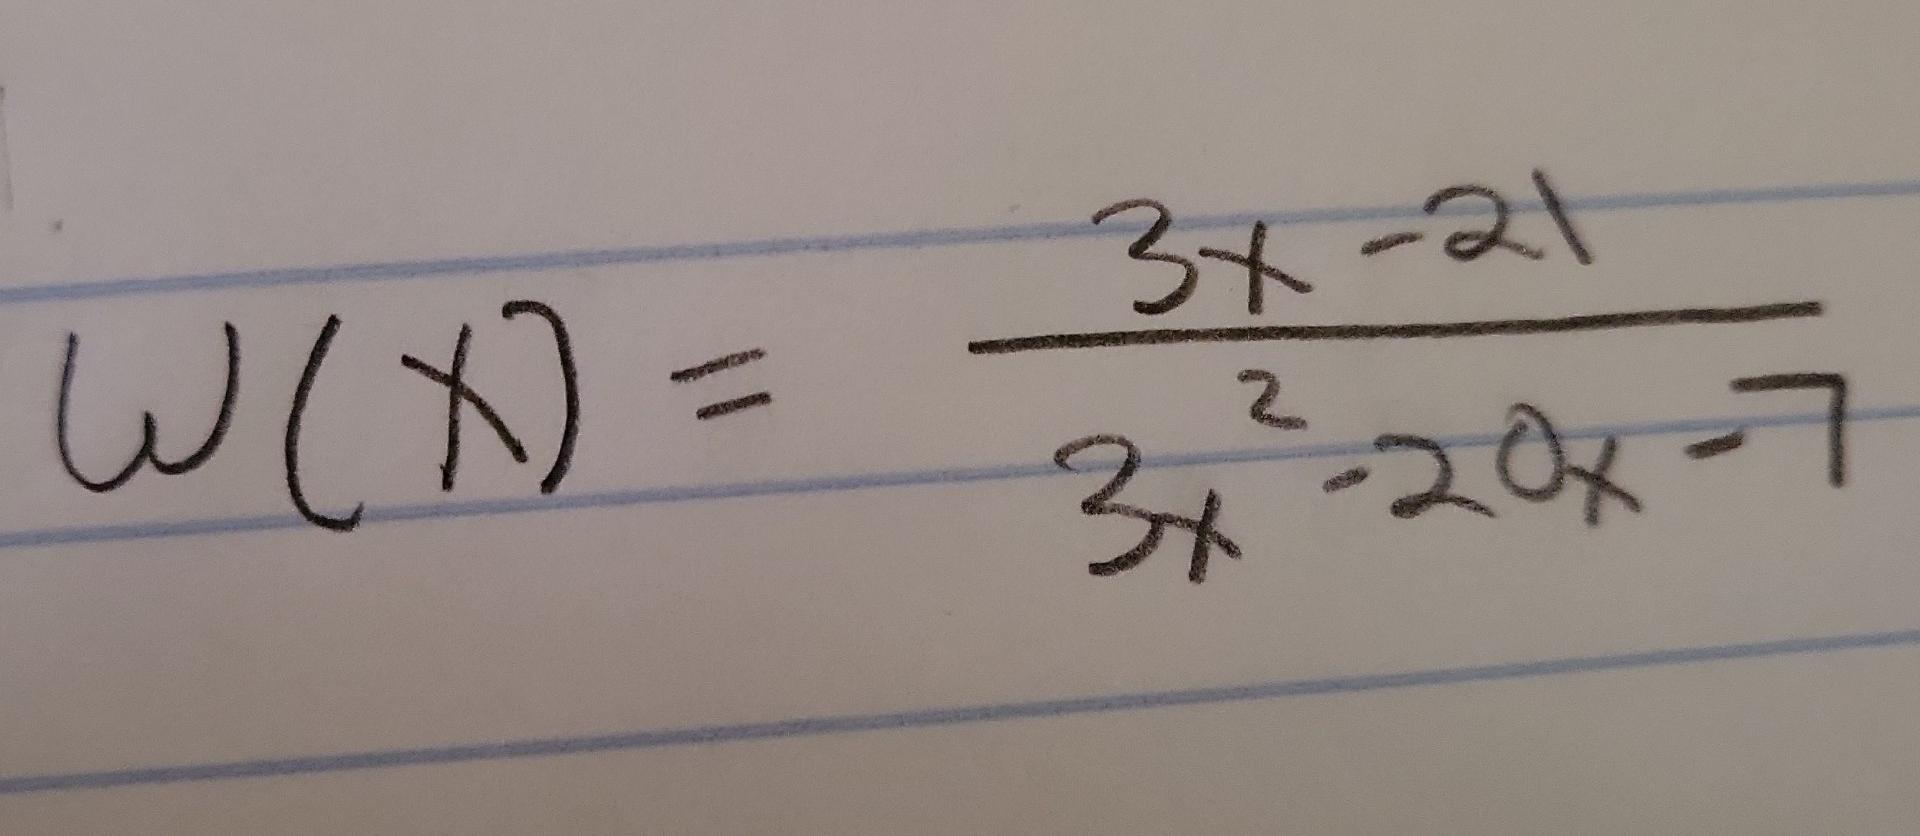 W(x) = (3x - 21) / (3x² - 20x - 7)